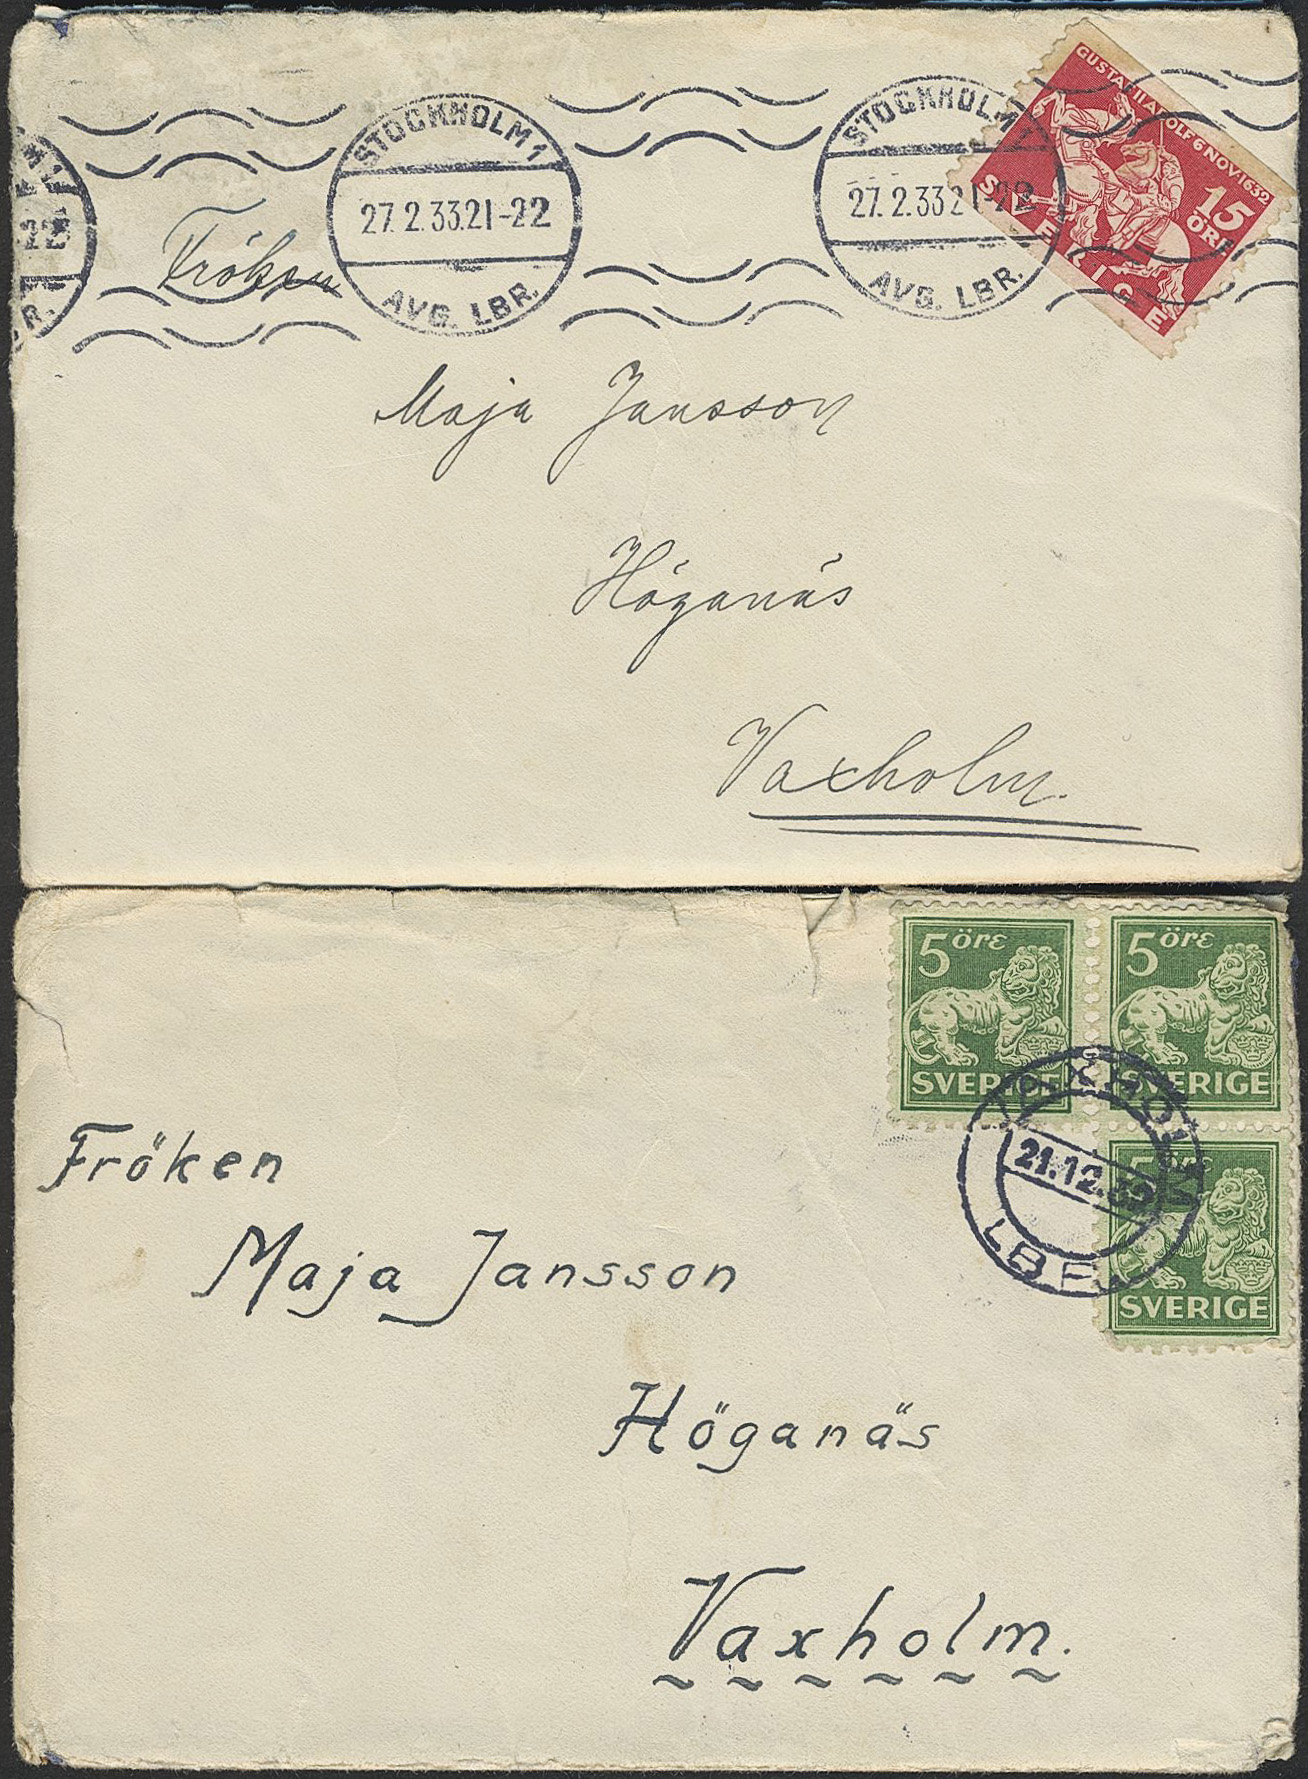 STOCKHOLM 1
27.2.33.21-22
AVG. LBR.
STOCKHOLM 1
27.2.33 21-22
AVG. LBR.
GUSTAF II ADOLF 6 NOV 1632
15
ÖRE
SVERIGE
M 1
22
R.
Fröken
Maja Jansson
Höganäs
Vaxholm.
5 öre
SVERIGE
5 öre
SVERIGE
5 öre
SVERIGE
21.12.
LBR
Fröken
Maja Jansson
Höganäs
Vaxholm.